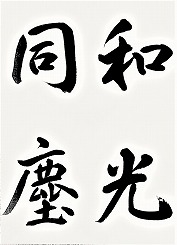 和光
同塵